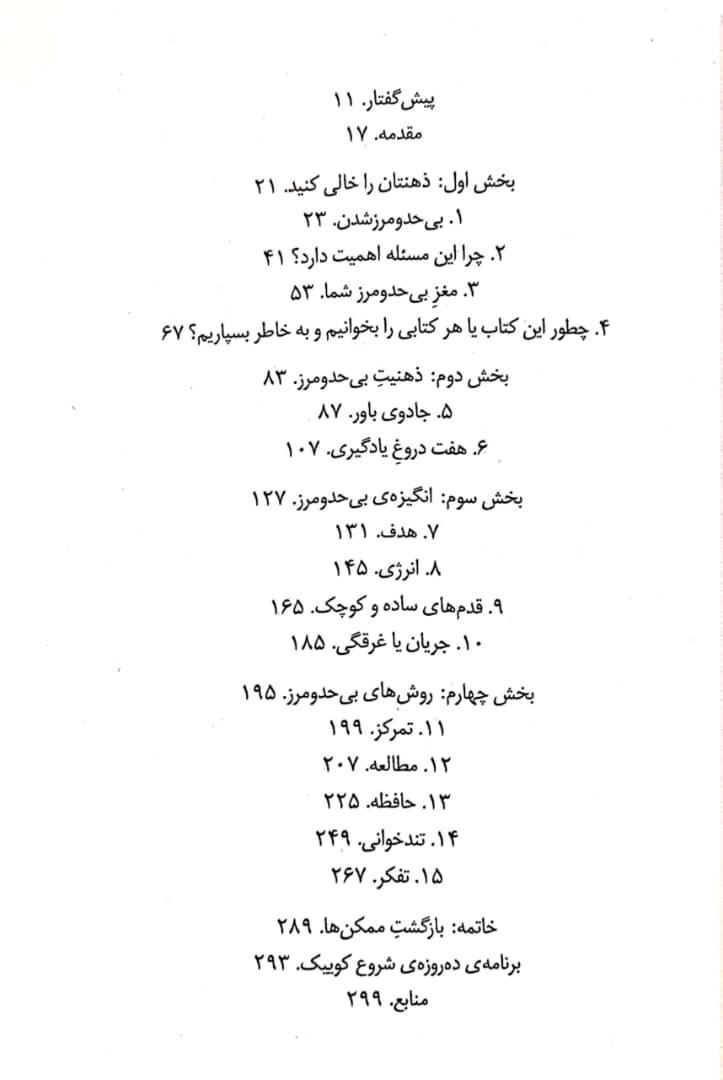 پیش‌گفتار. ۱۱
مقدمه. ۱۷
بخش اول: ذهنتان را خالی کنید. ۲۱
۱. بی‌حدومرزشدن. ۲۳
۲. چرا این مسئله اهمیت دارد؟ ۴۱
۳. مغزِ بی‌حدومرز شما. ۵۳
۴. چطور این کتاب یا هر کتابی را بخوانیم و به خاطر بسپاریم؟ ۶۷
بخش دوم: ذهنیتِ بی‌حدومرز. ۸۳
۵. جادوی باور. ۸۷
۶. هفت دروغِ یادگیری. ۱۰۷
بخش سوم: انگیزه‌ی بی‌حدومرز. ۱۲۷
۷. هدف. ۱۳۱
۸. انرژی. ۱۴۵
۹. قدم‌های ساده و کوچک. ۱۶۵
۱۰. جریان یا غرقگی. ۱۸۵
بخش چهارم: روش‌های بی‌حدومرز. ۱۹۵
۱۱. تمرکز. ۱۹۹
۱۲. مطالعه. ۲۰۷
۱۳. حافظه. ۲۲۵
۱۴. تندخوانی. ۲۴۹
۱۵. تفکر. ۲۶۷
خاتمه: بازگشتِ ممکن‌ها. ۲۸۹
برنامه‌ی ده‌روزه‌ی شروع کوییک. ۲۹۳
منابع. ۲۹۹